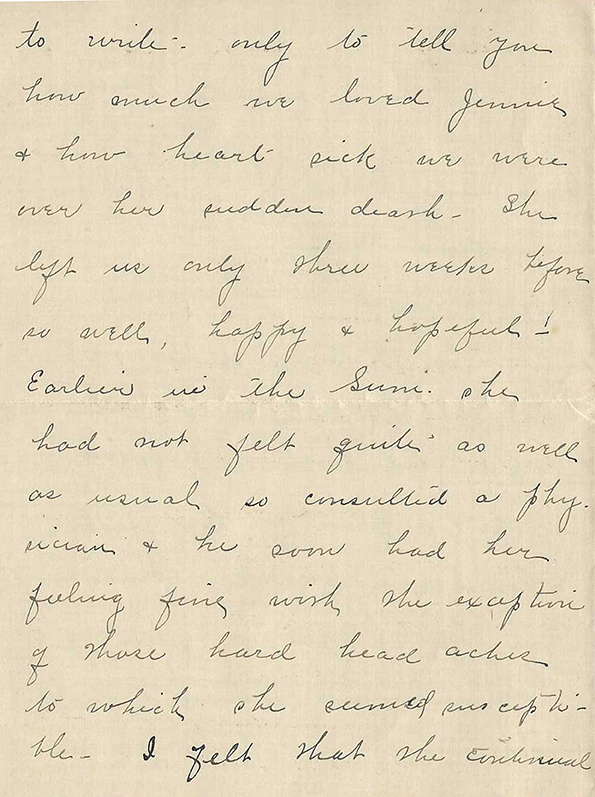 to write - only to tell you
how much we loved Jennie
& how heart sick we were
over her sudden death - She
left us only three weeks before
so well, happy & hopeful!
Earlier in the Sum. she
had not felt quite as well
as usual so consulted a phy-
sician & he soon had her
feeling fine with the exception
of those hard head aches
to which she seemed suscepti-
ble - I felt that the continual